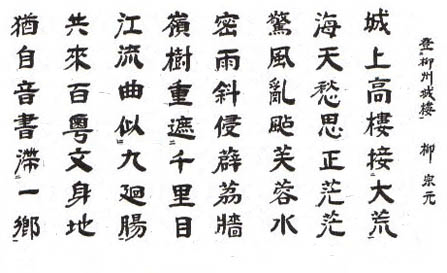 登柳州城樓 柳宗元
城上高樓接大荒
海天愁思正茫茫
驚風亂颭芙蓉水
密雨斜侵薜荔牆
嶺樹重遮千里目
江流曲似九廻腸
共來百粵文身地
猶自音書滯一鄉